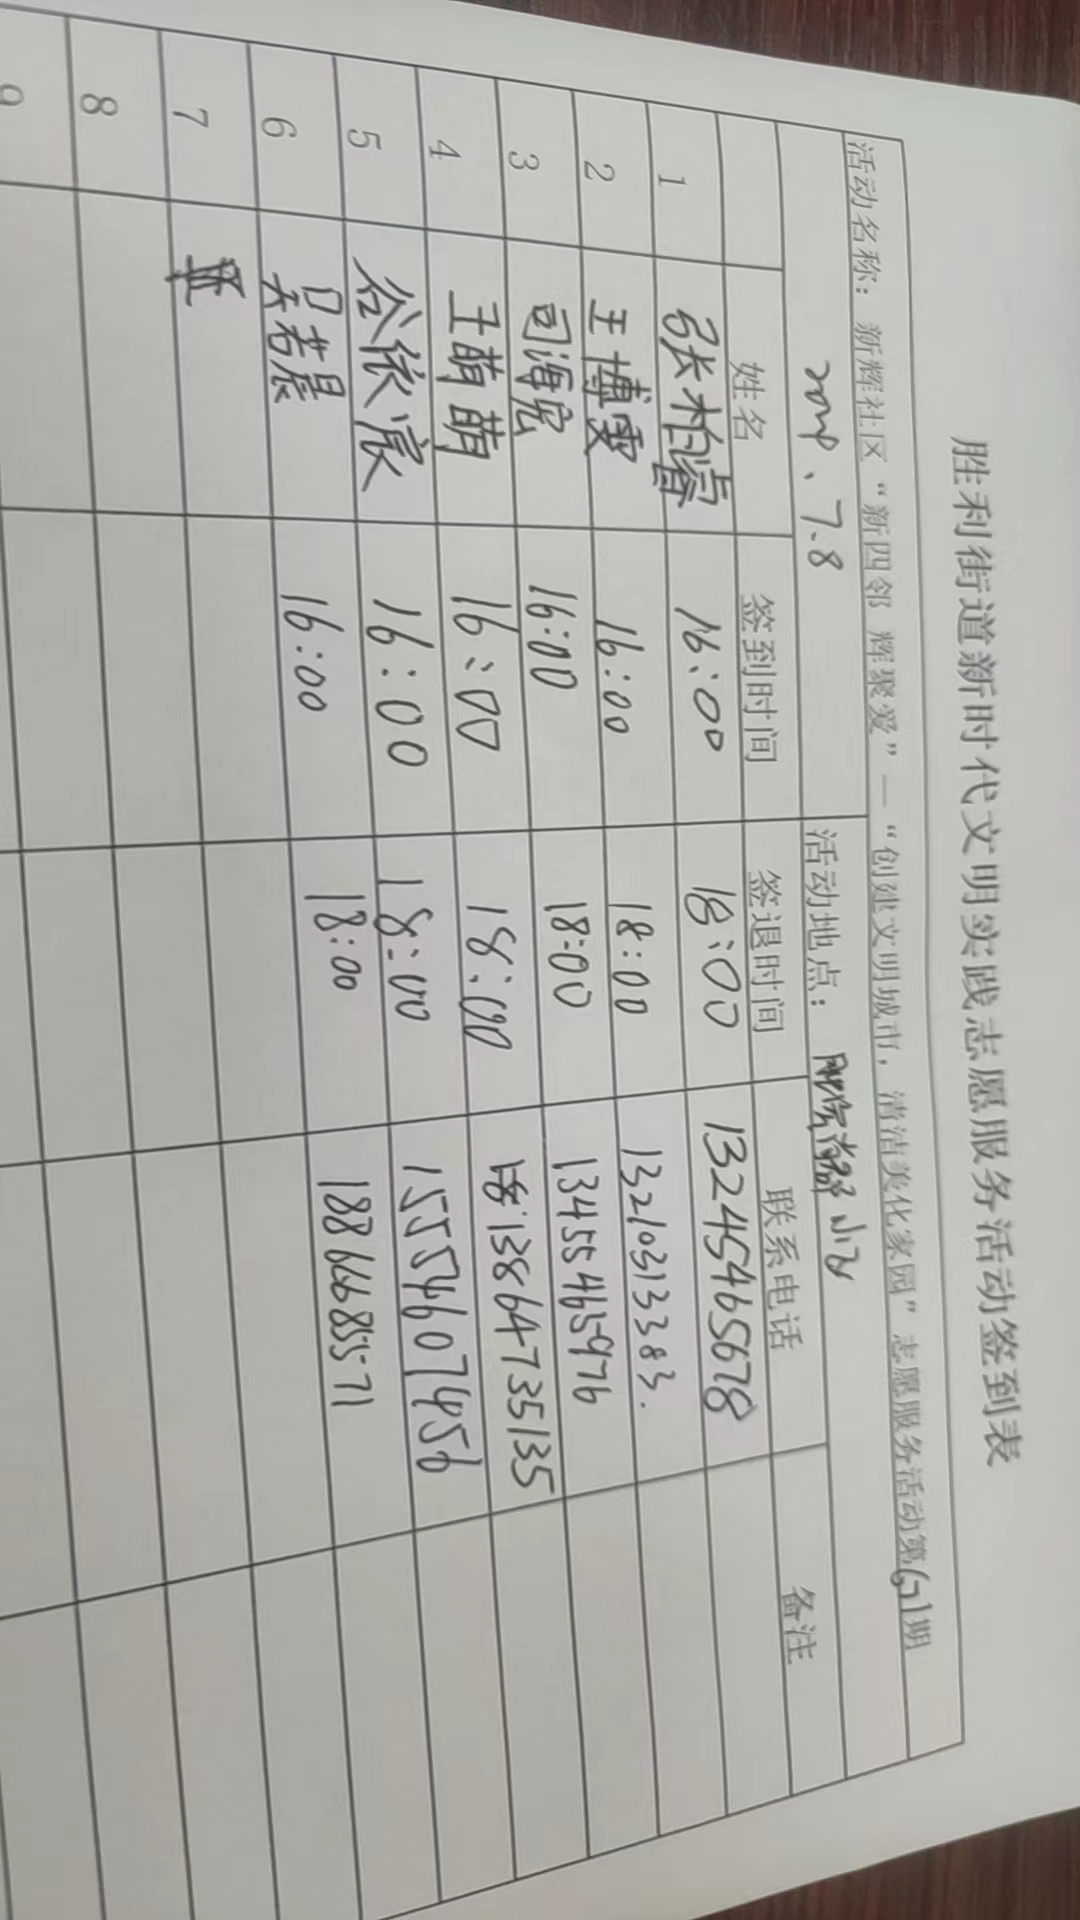 胜利街道新时代文明实践志愿服务活动签到表
活动名称：新辉社区“新四邻 辉聚爱”—“创建文明城市，清洁美化家园”志愿服务活动第期
7.8 活动地点： 小区
姓名 签到时间 签退时间 联系电话 备注
1 张柏睿 16:00 18:00 13245465678
2 王博雯 16:00 18:00 13210313383.
3 司海宏 16:00 18:00 13455463976
4 王萌萌 16:00 18:00 13864735135
5 谷依宸 16:00 18:00 15554607456
6 吴若晨 16:00 18:00 18866685571
7
8
9